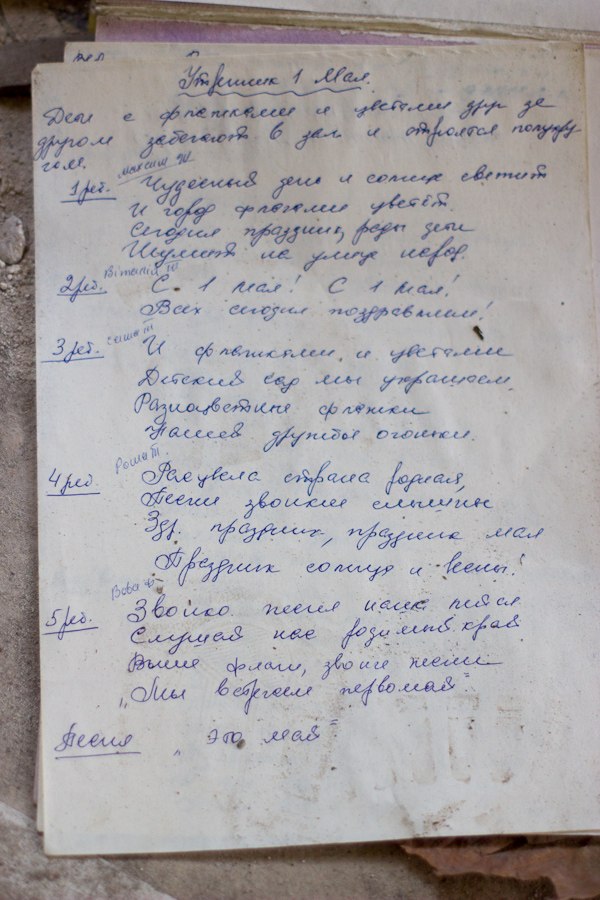 Утренник 1 Мая.
Дети с флажками и цветами друг за
другом забегают в зал и строятся полукру
гом.
Максим Ш
1 реб. Чудесный день и солнце светит
И город флагами цветёт.
Сегодня праздник, рады дети
Шумит на улице народ.
Віталій Ш
2 реб. С 1 мая! С 1 мая!
Всех сегодня поздравляем!
3 реб. И флажками, и цветами
Детский сад мы украшаем.
Разноцветные флажки
Нашей дружбы огоньки.
4 реб. Расцвела страна родная,
Песни звонкие слышны
Здр. праздник, праздник мая
Праздник солнца и весны!
Вова
5 реб. Звонко песня наша льётся
Слушай нас родимый край
Выше флаги, звонче песни
„Мы встречаем первомай"
Песня „ это май"